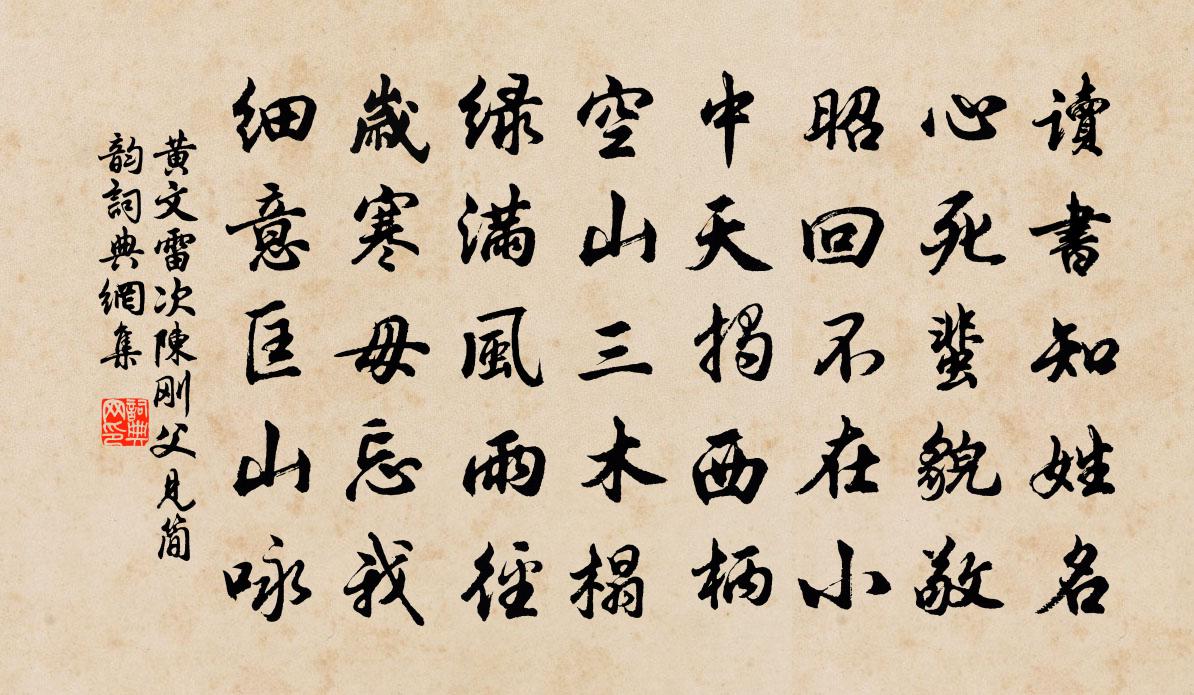 讀書知姓名
心死蜚貌敬
昭回不在小
中天揭西柄
空山三木榻
緑滿風雨徑
歲寒毋忘我
細意匡山咏
黄文雷次陳剛父見簡
韵詞典網集
詞典网印